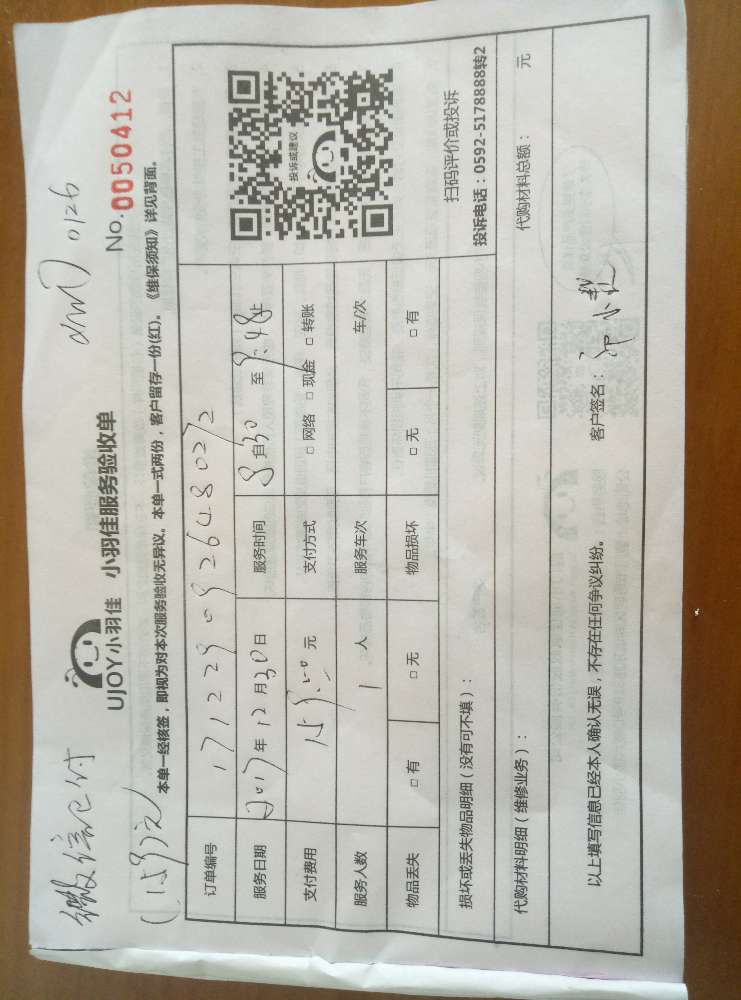 微信已付
(159元)
0126
UJOY小羽佳 小羽佳服务验收单
No.0050412
本单一经核签，即视为对本次服务验收无异议。本单一式两份，客户留存一份(红)。《维保须知》详见背面。
订单编号 1712290926480272
服务日期 2017年12月30日 服务时间 8自30 至 9.48止
支付费用 159.00 元 支付方式 □ 网络 □ 现金 □ 转账
服务人数 1 人 服务车次 车/次
物品丢失 □ 有 □ 无 物品损坏 □ 无 □ 有
投诉或建议
扫码评价或投诉
投诉电话：0592-5178888转2
损坏或丢失物品明细（没有可不填）：
代购材料明细（维修业务）： 代购材料总额： 元
以上填写信息已经本人确认无误，不存在任何争议纠纷。 客户签名：